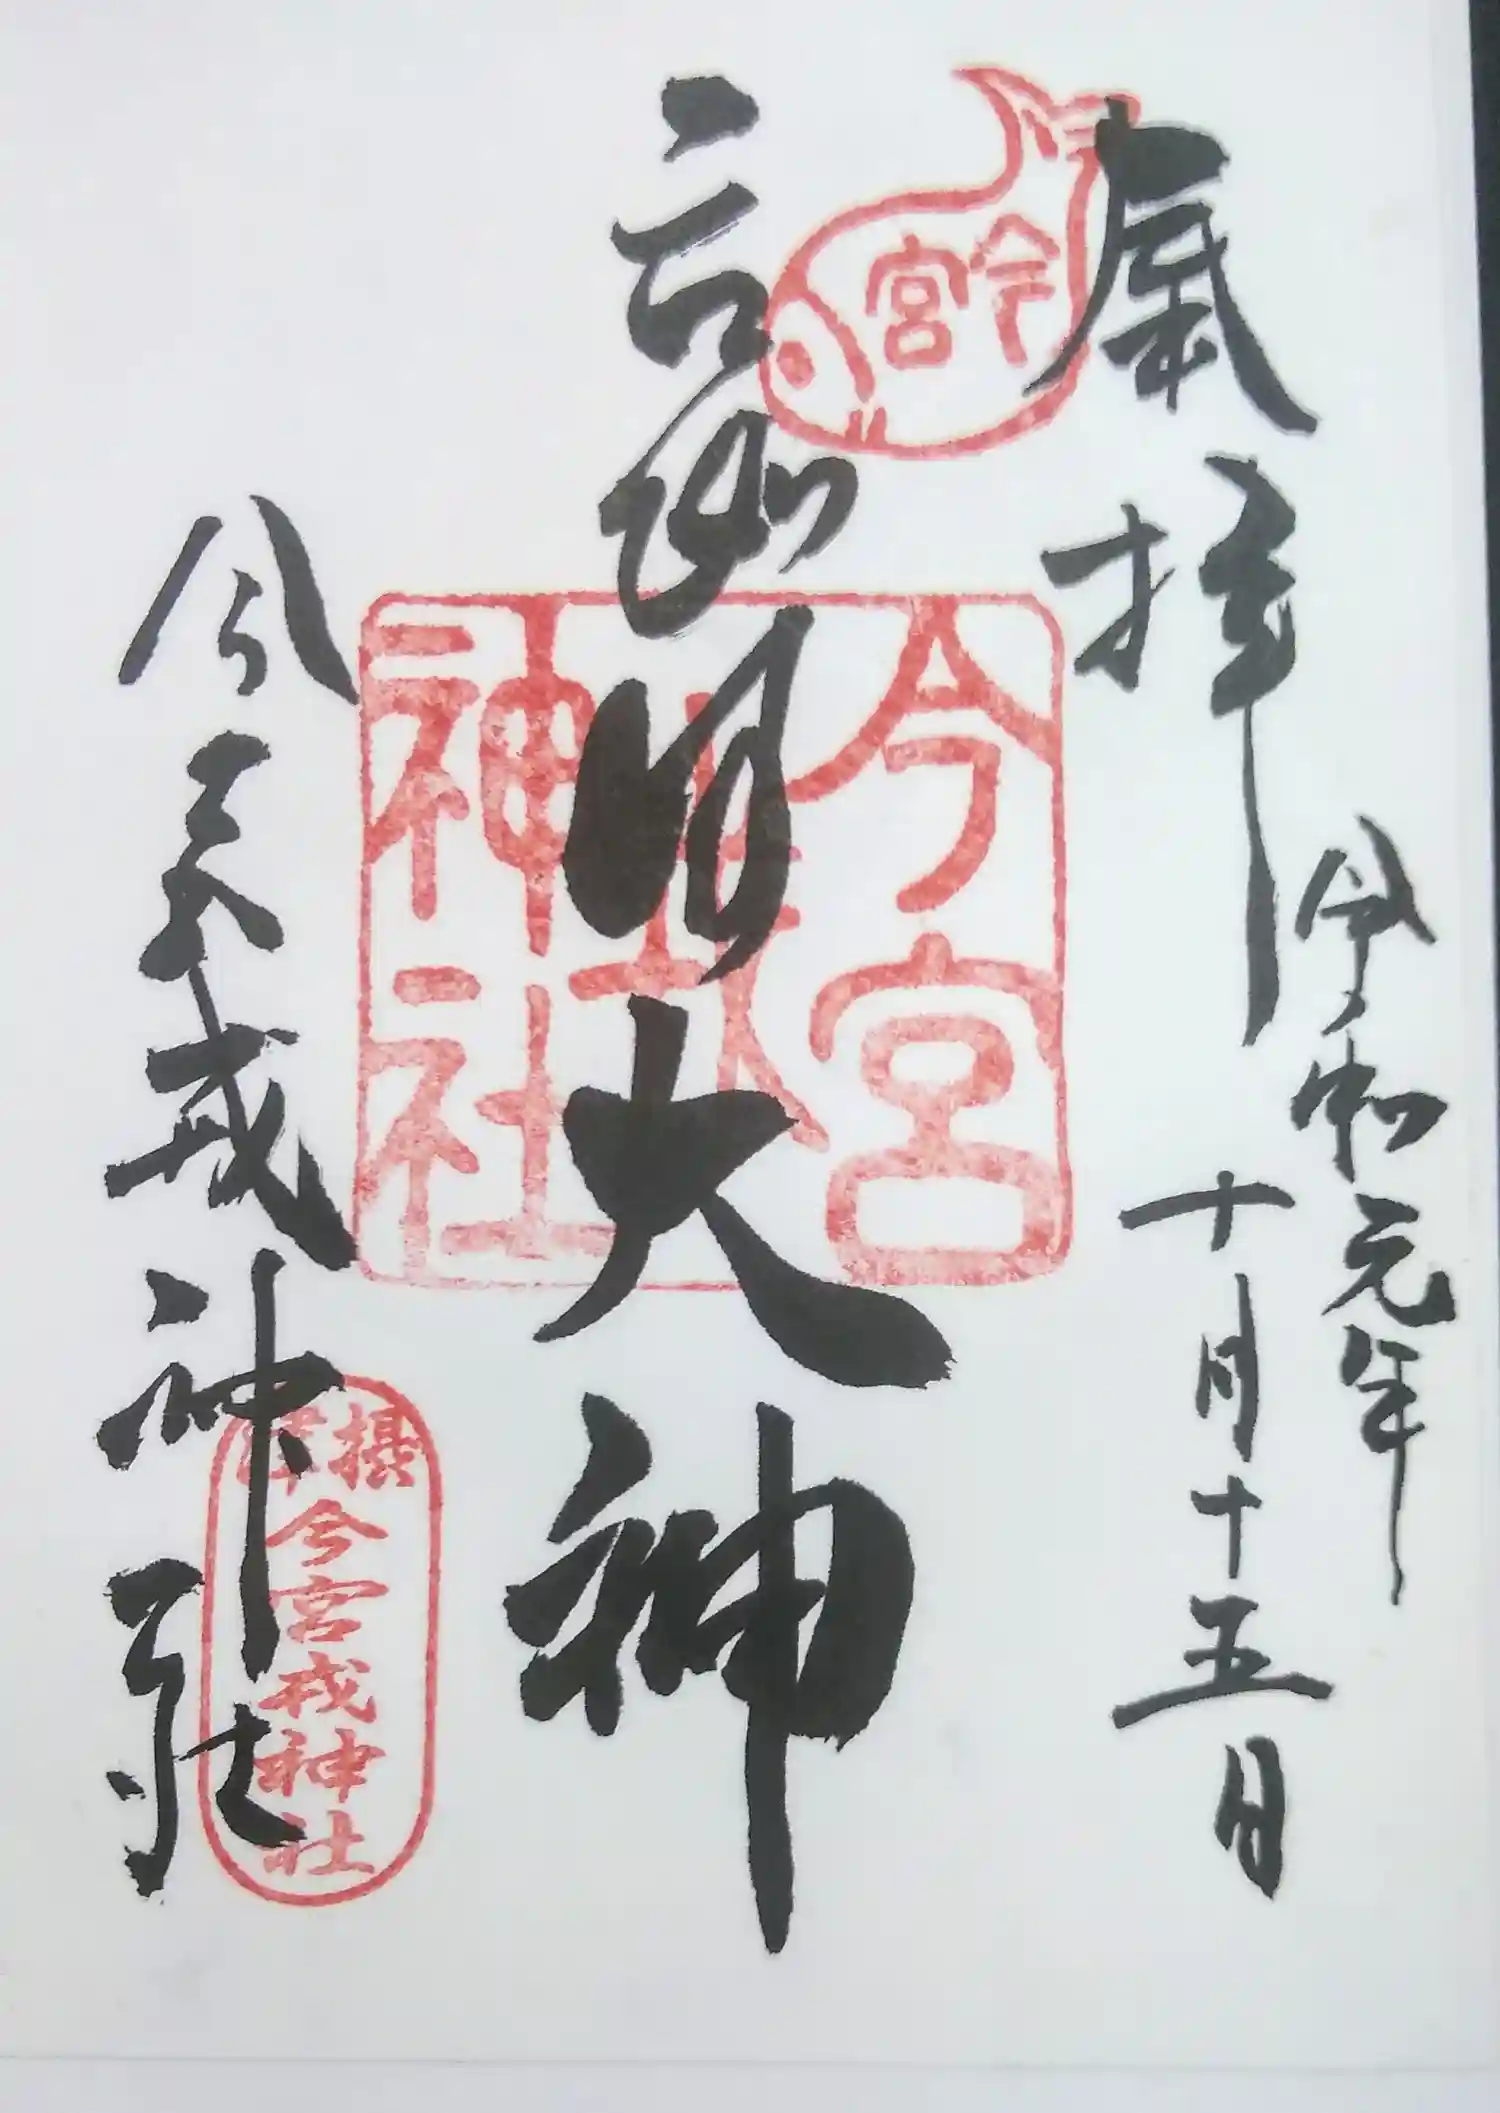 奉拝
令和元年
十月十五日
今宮
明大神
今宮
戎
神社
今宮戎神社
摂津
今宮戎神社